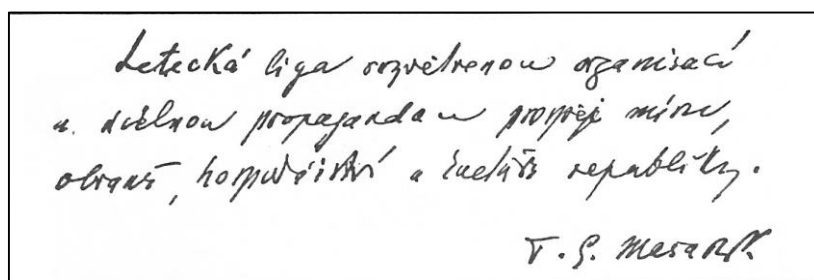 Letecká liga rozvětvenou organisací
a účelnou propagandou prospěje míru,
obraně, hospodářství a
republiky.
T. G. Masaryk